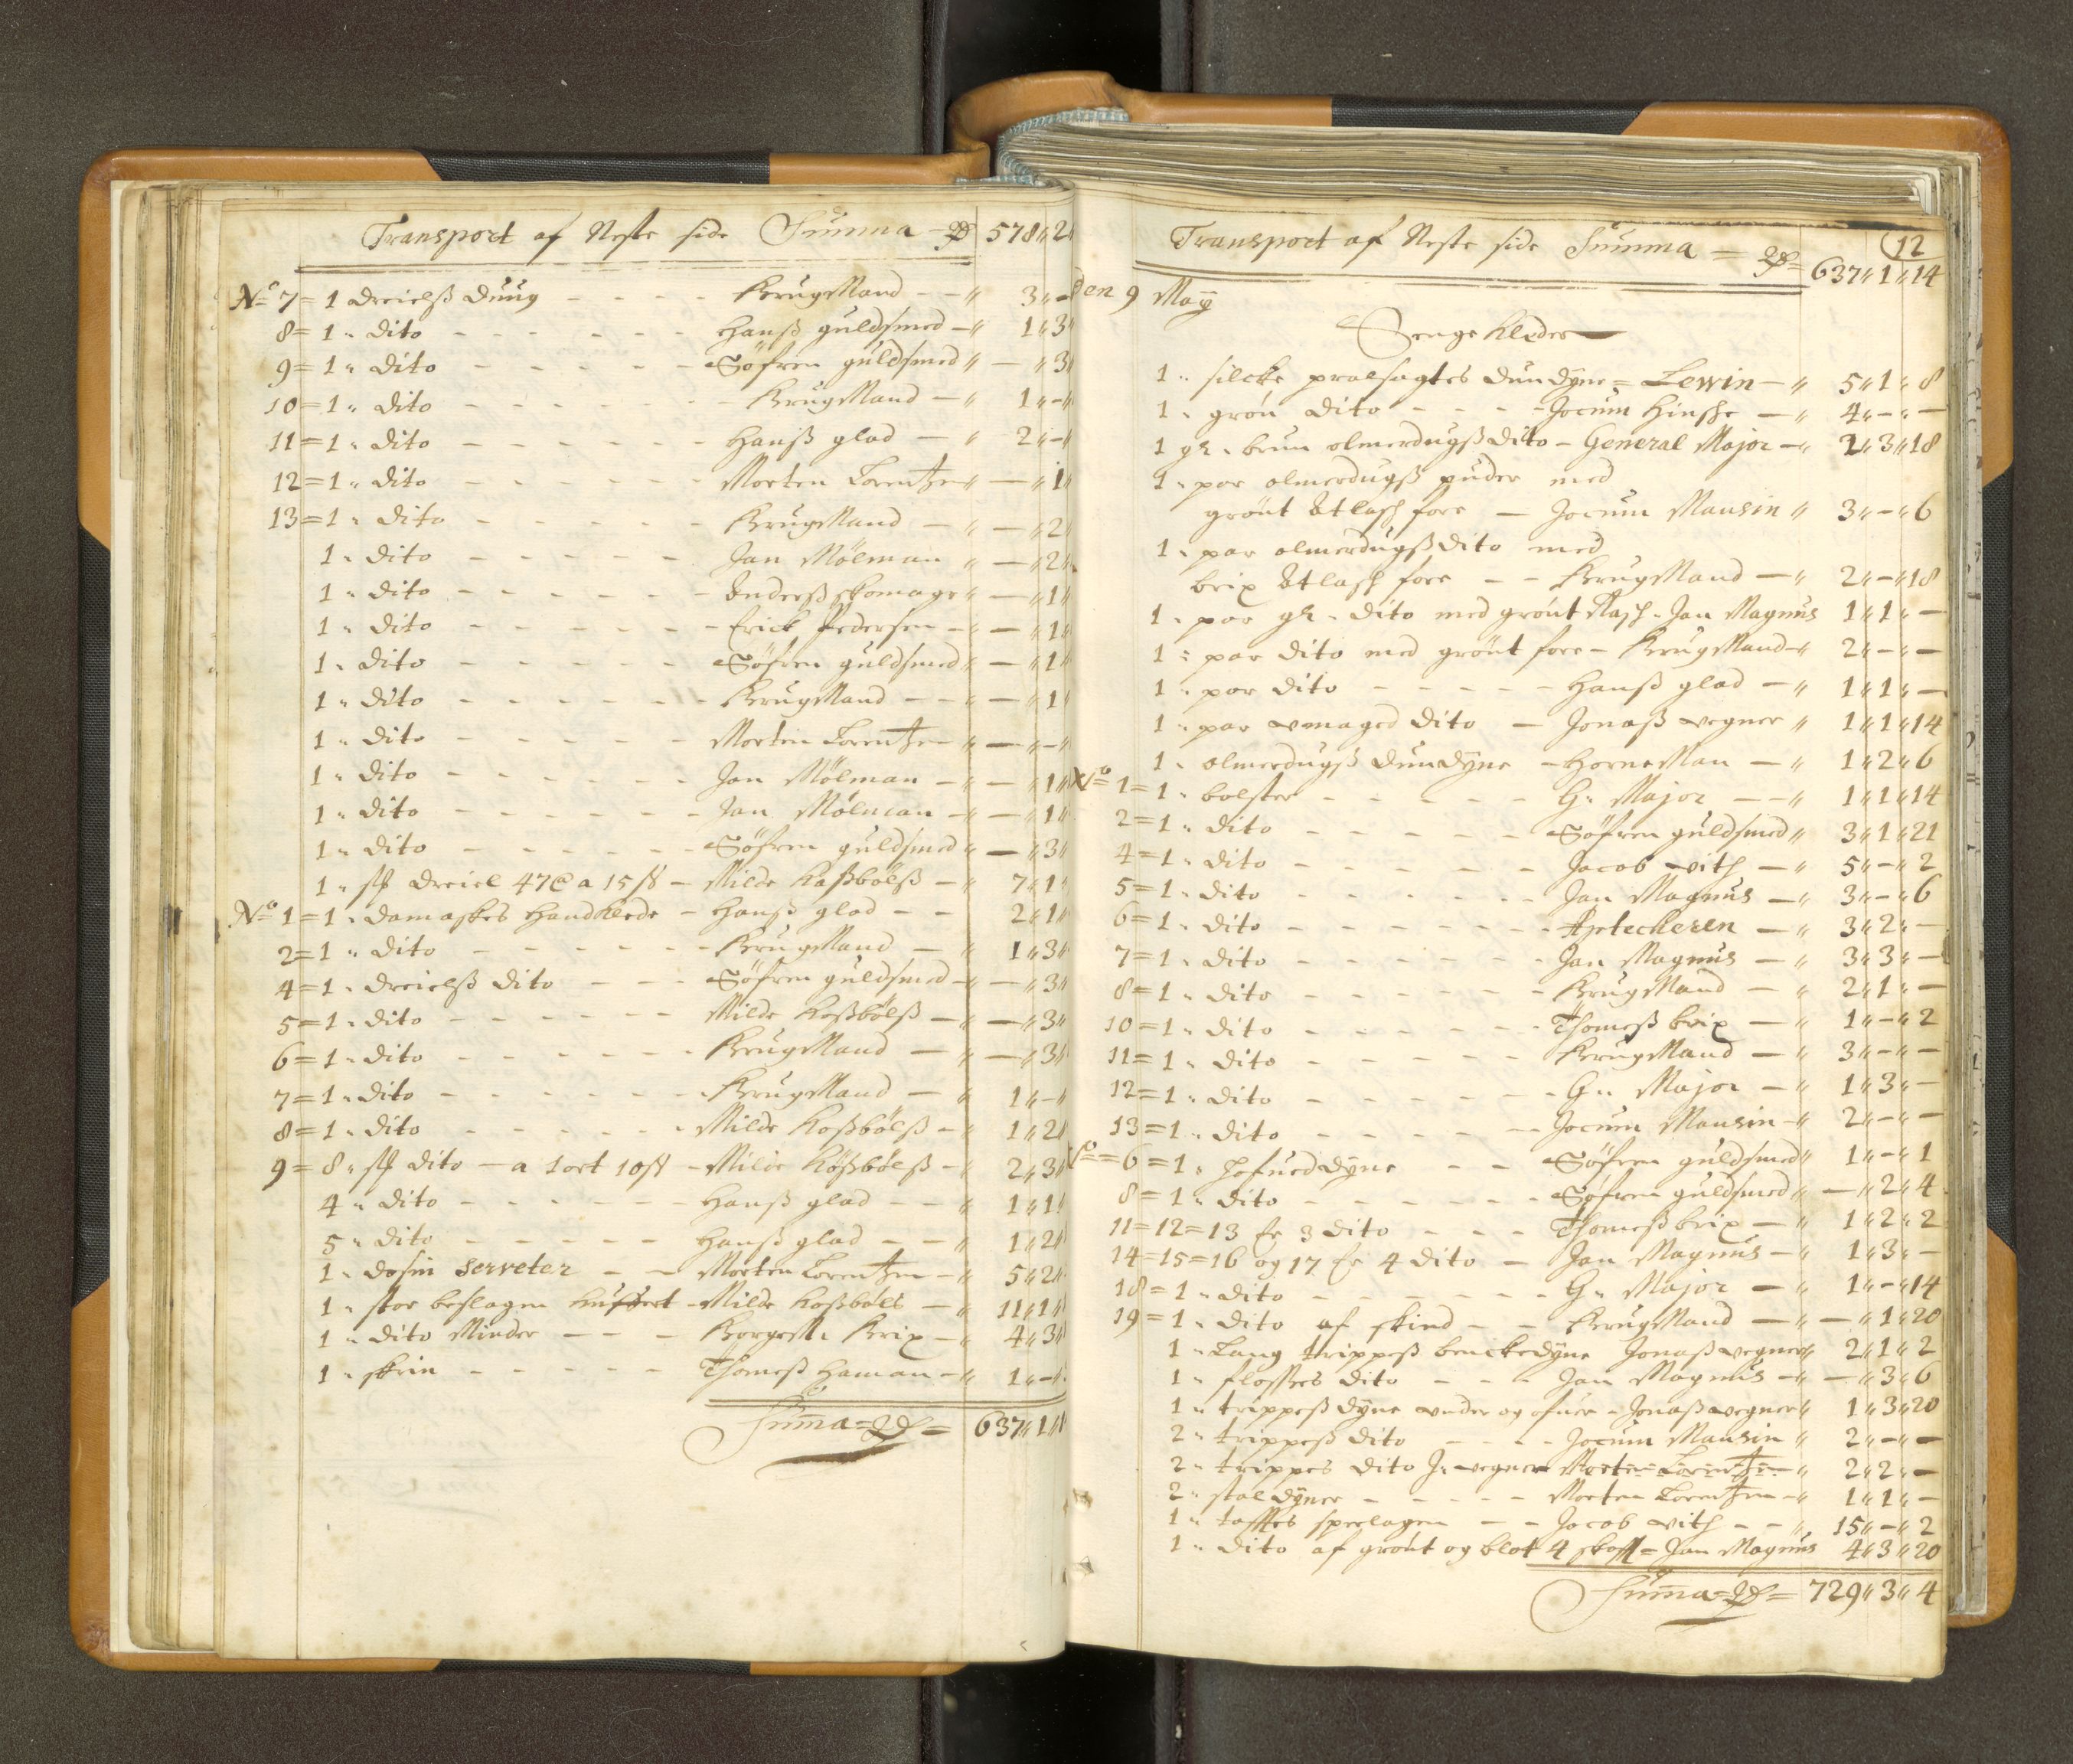 Transport af Neste side Summa - Rd 578 " 2 "
No 7 = 1 dreielß duug - - - - KrugMand - - " 3 " -
8 = 1 " dito - - - - - - Hanß guldsmed - " 1 " 3 "
9 = 1 " dito - - - - - Söfren guldsmed " - " 3 "
10 = 1 " dito - - - - - - KrugMand - " 1 " - "
11 = 1 " dito - - - - - - Hanß glad - " 2 " - "
12 = 1 " dito - - - - - - Morten Lorentzen " - " 1 "
13 = 1 " dito - - - - - KrugMand - " - " 2 "
1 " dito - - - - - Jan Mölman " - " 2 "
1 " dito - - - - - - Anderß skomager " - " 1 "
1 " dito - - - - - - Erick Pedersen - " - " 1 "
1 " dito - - - - - Söfren guldsmed " - " 1 "
1 " dito - - - - - - KrugMand - - " - " 1 "
1 " dito - - - - - Morten Lorentzen " - " - "
1 " dito - - - - - Jan Mölman - " - " 1 "
1 " dito - - - - - - Jan Mölman - " - " 1 "
1 " dito - - - - - - Söfren guldsmed " - " 3 "
1 " st dreiel 47 @ a 15 ß - Milde Kaßbölß - " 7 " 1 "
No 1 = 1 " damaskes Handklede - Hanß glad - - 2 " 1 "
2 = 1 " dito - - - - - - KrugMand - " 1 " 3 "
4 = 1 " dreielß dito - - - Söfren guldsmed - " - " 3 "
5 = 1 " dito - - - - - - Milde Koßbölß - " - " 3 "
6 = 1 " dito - - - - - - KrugMand - " - " 3 "
7 = 1 " dito - - - - - - KrugMand - " 1 " - "
8 = 1 " dito - - - - - - Milde Koßbölß - " 1 " 2 "
9 = 8 " st dito - a 1 ort 10 ß - Milde Kößbölß - " 2 " 3 "
4 " dito - - - - - - Hanß glad - - " 1 " 1 "
5 " dito - - - - - Hanß glad - - " 1 " 2 "
1 " dosin Serveter - - Morten Lorentzen - " 5 " 2 "
1 " stor beslagen Kuffert - Milde Koßböls - " 11 " 1 "
1 " dito Minder - - - BorgeM: Brix - " 4 " 3 "
1 " skrin - - - - - Thomeß Haman - " 1 " - "
Summa = Rd = 637 " 1 "
12
Transport af Neste side Summa = Rd = 637 " 1 " 14
den 9 Maij
Senge Kleder
1 " silcke dundyne = Lewin - " 5 " 1 " 8
1 " grön dito - - - - Jocum Hinsche - " 4 " - " -
1 gl " brun olmerdugß dito - General Major - " 2 " 3 " 18
1 " par olmerdugß puder med
grönt Atlask fore - Jocum Mausin " 3 " - " 6
1 " par olmerdugß dito med
Atlask fore - - KrugMand - " 2 " - " 18
1 " par gl - dito med grönt - Jan Magnus 1 " 1 " -
1 " par dito med grönt fore - KrugMand - " 2 " - " -
1 " par dito - - - - - Hanß glad - " 1 " 1 " -
1 " par vmaged dito - Jonaß wegner " 1 " 1 " 14
1 " olmerdugß dundyne - HorneMan - " 1 " 2 " 6
No 1 = 1 " bolster - - - - - G: Major - - " 1 " 1 " 14
2 = 1 " dito - - - - - Söfren guldsmed " 3 " 1 " 21
4 = 1 " dito - - - - - Jacob with - " 5 " - " 2
5 = 1 " dito - - - - - - Jan Magnus - " 3 " - " 6
6 = 1 " dito - - - - - - Aptecheren - " 3 " 2 " -
7 = 1 " dito - - - - - - Jan Magnus - " 3 " 3 " -
8 = 1 " dito - - - - - - KrugMand - " 2 " 1 " -
10 = 1 " dito - - - - - - Thomeß brix - " 1 " - " 2
11 = 1 " dito - - - - - KrugMand - " 3 " - " -
12 = 1 " dito - - - - - - G: Major - " 1 " 3 " -
13 = 1 " dito - - - - - - Jocum Mausin - " 2 " - " -
No = 6 = 1 " Hofued dyne - - Söfren guldsmed " 1 " - " 1
8 = 1 " dito - - - - - - Söfren guldsmed " - " 2 " 4
11 = 12 = 13 Er 3 dito - - - Thomeß brix - " 1 " 2 " 2
14 = 15 = 16 og 17 Er 4 dito - Jan Magnus - " 1 " 3 " -
18 = 1 " dito - - - - - - G: Major - " 1 " - " 14
19 = 1 " dito af skind - - KrugMand - " - " 1 " 20
1 " Lang trippeß benckedyne Jonaß wegner " 2 " 1 " 2
1 " floßes dito - - - Jan Magnus - " - " 3 " 6
1 " trippeß dyne vnder og ofuer - Jonaß wegner " 1 " 3 " 20
2 " trippeß dito - - - - Jocum Mausin " 2 " - " -
2 " trippes dito J: wegner Morten Lorentzen " 2 " 2 " -
2 " stol dyner - - - - - Morten Lorentzen - " 1 " 1 " -
1 " tafftes sperlagen - - Jacob with - - " 15 " - " 2
1 " dito af grönt og blot 4 = Jan Magnus 4 " 3 " 20
Summa = Rd = 729 " 3 " 4